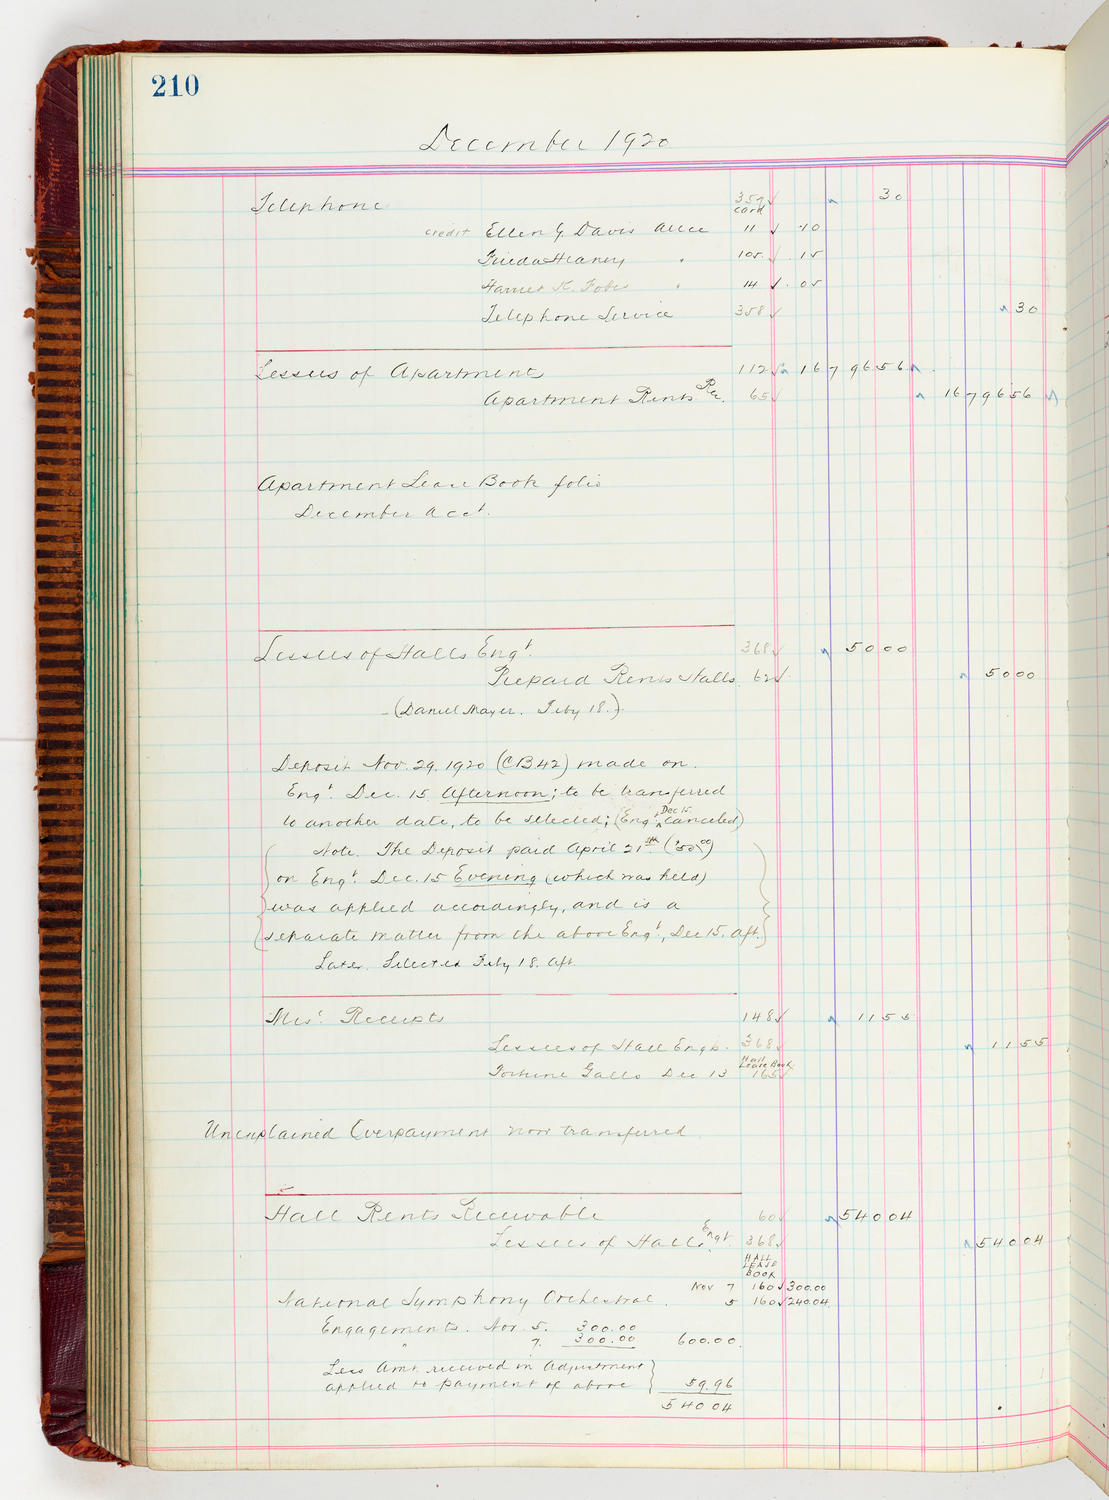 210
December 1920
Telephone 359 30
card
credit Ellen G. Davis Acce 11 .10
Frieda Heaney " 105 .15
Harriet K. Fobes " 14 .05
Telephone Service 358 30
Lessees of Apartments 112 16796 56
Apartment Rents Rec. 65 16796 56
Apartment Lease Book folio
December acct.
Lessees of Halls Engt. 368 50 00
Prepaid Rents Halls 62 50 00
(Daniel Mayer. Feby 18.)
Deposit Nov. 29. 1920 (CB42) made on
Engt. Dec. 15 Afternoon; to be transferred
to another date, to be selected; (Engt. Dec 15 canceled)
Note. The Deposit paid April 21st. ($50.00)
on Engt. Dec. 15 Evening (which was held)
was applied accordingly, and is a
separate matter from the above Engt., Dec 15. Aft.
Later. Selected Feby 18. Aft.
Misc. Receipts 148 11 55
Lessees of Hall Engts. 368 11 55
Hall Lease Book
Fortune Gallo Dec 13 165
Unexplained Overpayment now transferred
Hall Rents Receivable 60 540 04
Lessees of Halls Engt. 368 540 04
HALL
LEASE
BOOK
Nov 7 160 300.00
National Symphony Orchestral. 5 160 240.04
Engagements. Nov. 5. 300.00
" 7. 300.00 600.00
Less Amt. received in Adjustment
applied to payment of above 59.96
540 04